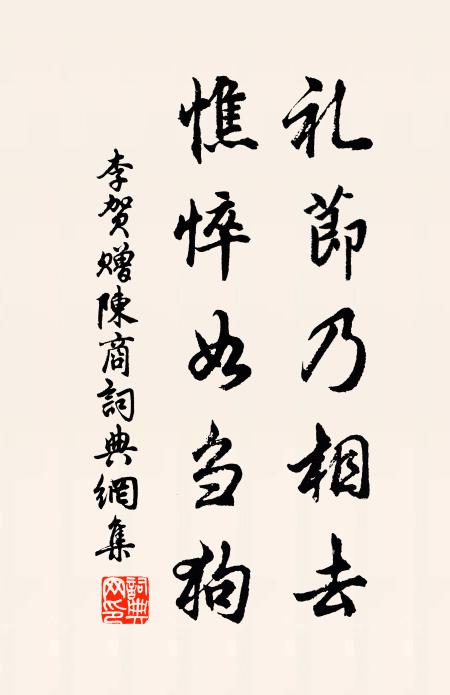 礼節乃相去
憔悴如刍狗
李賀贈陳商詞典網集
詞典网印